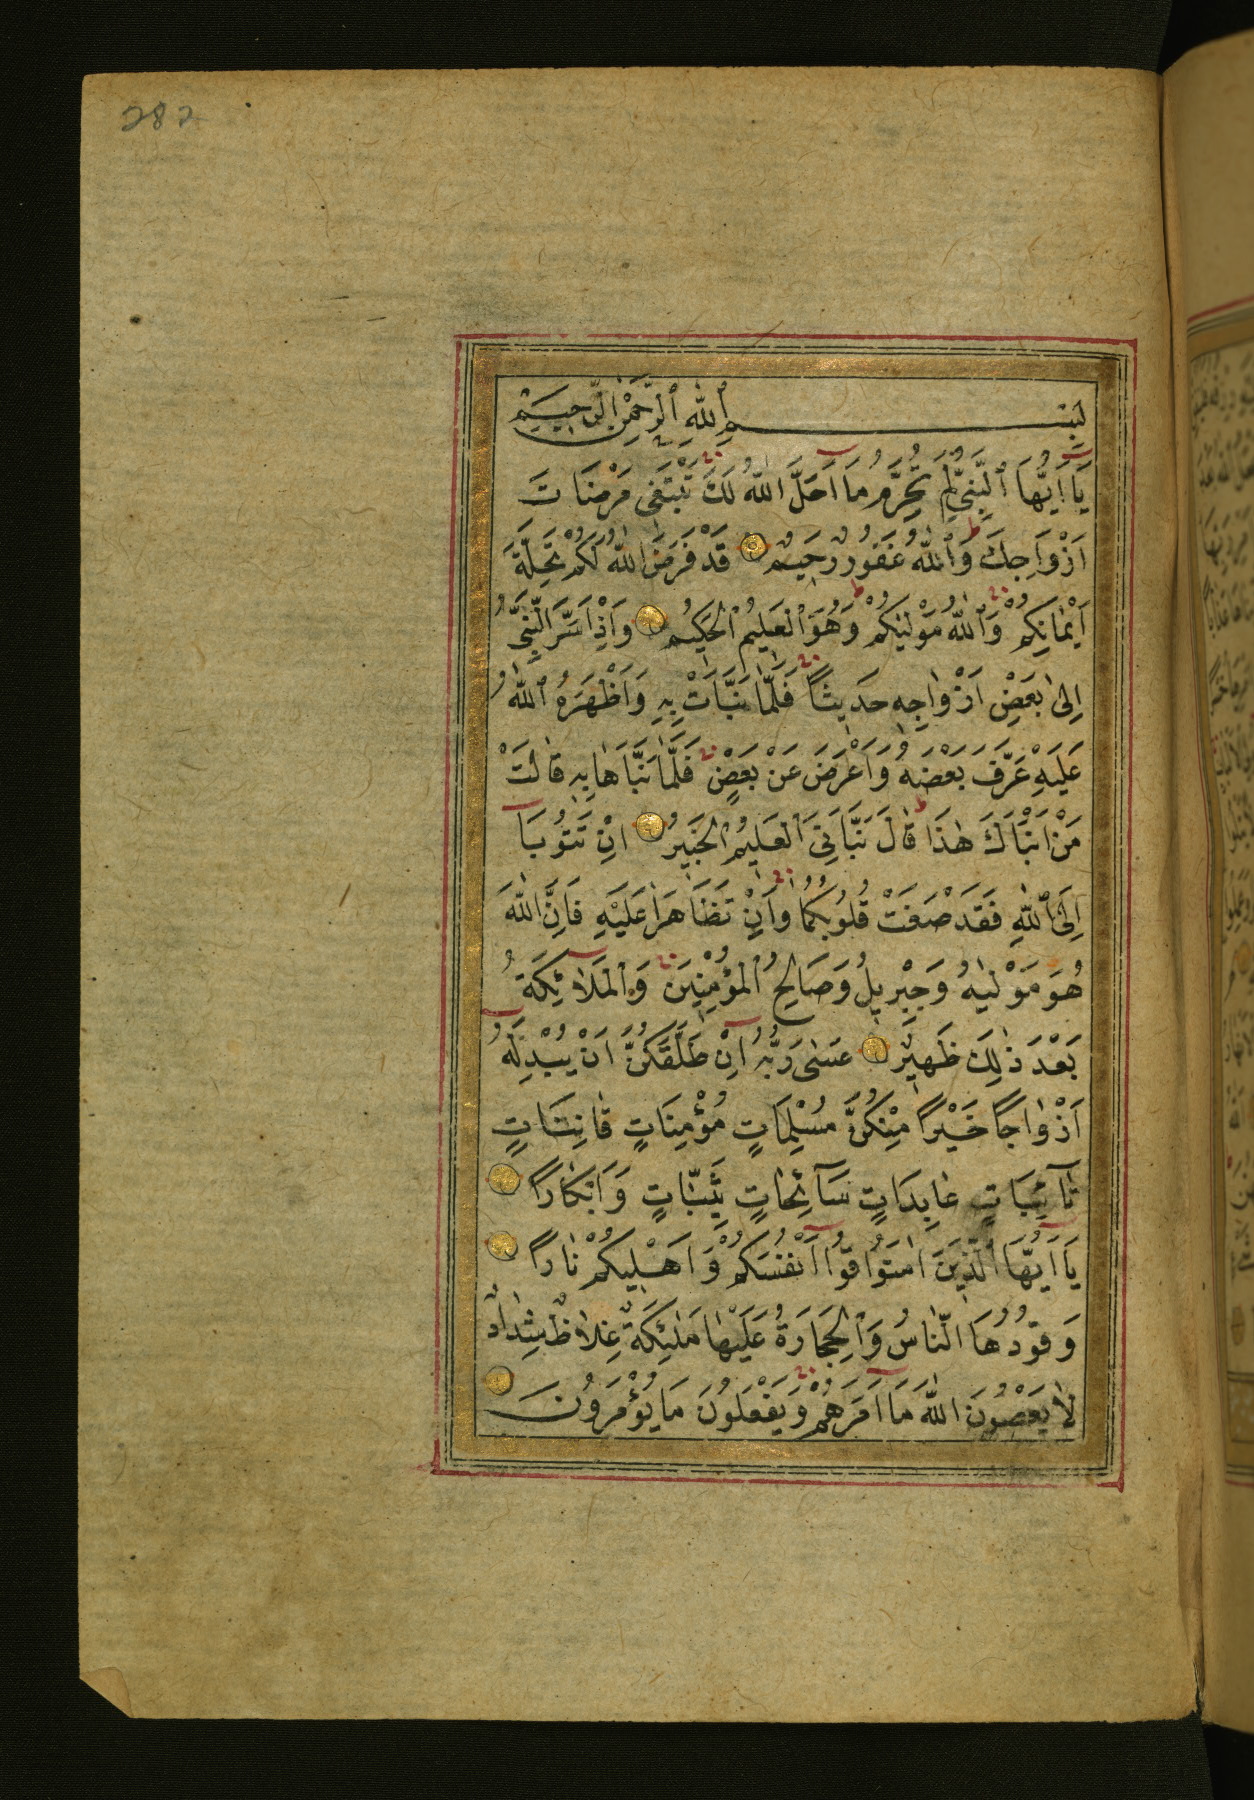 282
بِسْمِ ٱللّٰهِ ٱلرَّحْمٰنِ ٱلرَّحِيمِ
يَا اَيُّهَا ٱلنَّبِىُّ لِمَ تُحَرِّمُ مَا اَحَلَّ اللّٰهُ لَكَ تَبْتَغى مَرْضَاتَ
اَزْوَاجِكَ وَٱللّٰهُ غَفُورٌ رَحيمٌ قَدْ فَرَضَ اللّٰهُ لَكُمْ تَحِلَّةَ
اَيْمَانِكُمْ وَٱللّٰهُ مَوْليٰكُمْ وَهُوَ ٱلْعَليمُ ٱلْحَكيمُ وَاِذْ اَسَرَّ ٱلنَّبِىُّ
اِلىٰ بَعْضِ اَزْوَاجِهِ حَديثًا فَلَمَّا نَبَّاَتْ بِهِ وَاَظْهَرَهُ ٱللّٰهُ
عَلَيْهِ عَرَّفَ بَعْضَهُ وَاَعْرَضَ عَنْ بَعْضٍ فَلَمَّا نَبَّاَهَا بِهِ قَالَتْ
مَنْ اَنْبَاَكَ هٰذَا قَالَ نَبَّاَنِىَ ٱلْعَليمُ ٱلْخَبيرُ اِنْ تَتُوبَا
اِلَى ٱللّٰهِ فَقَدْ صَغَتْ قُلُوبُكُمَا وَاِنْ تَظَاهَرَا عَلَيْهِ فَاِنَّ اللّٰهَ
هُوَ مَوْليٰهُ وَجِبْريلُ وَصَالِحُ ٱلْمُؤْمِنينَ وَٱلْمَلَائِكَةُ
بَعْدَ ذٰلِكَ ظَهيرٌ عَسٰى رَبُّهُ اِنْ طَلَّقَكُنَّ اَنْ يُبْدِلَهُ
اَزْوَاجًا خَيْرًا مِنْكُنَّ مُسْلِمَاتٍ مُؤْمِنَاتٍ قَانِتَاتٍ
تَائِبَاتٍ عَابِدَاتٍ سَائِحَاتٍ ثَيِّبَاتٍ وَاَبْكَارًا
يَا اَيُّهَا ٱلَّذينَ اٰمَنُوا قُوا اَنْفُسَكُمْ وَاَهْليكُمْ نَارًا
وَقُودُهَا ٱلنَّاسُ وَٱلْحِجَارَةُ عَلَيْهَا مَلٰئِكَةٌ غِلَاظٌ شِدَادٌ
لَا يَعْصُونَ اللّٰهَ مَا اَمَرَهُمْ وَيَفْعَلُونَ مَا يُؤْمَرُونَ